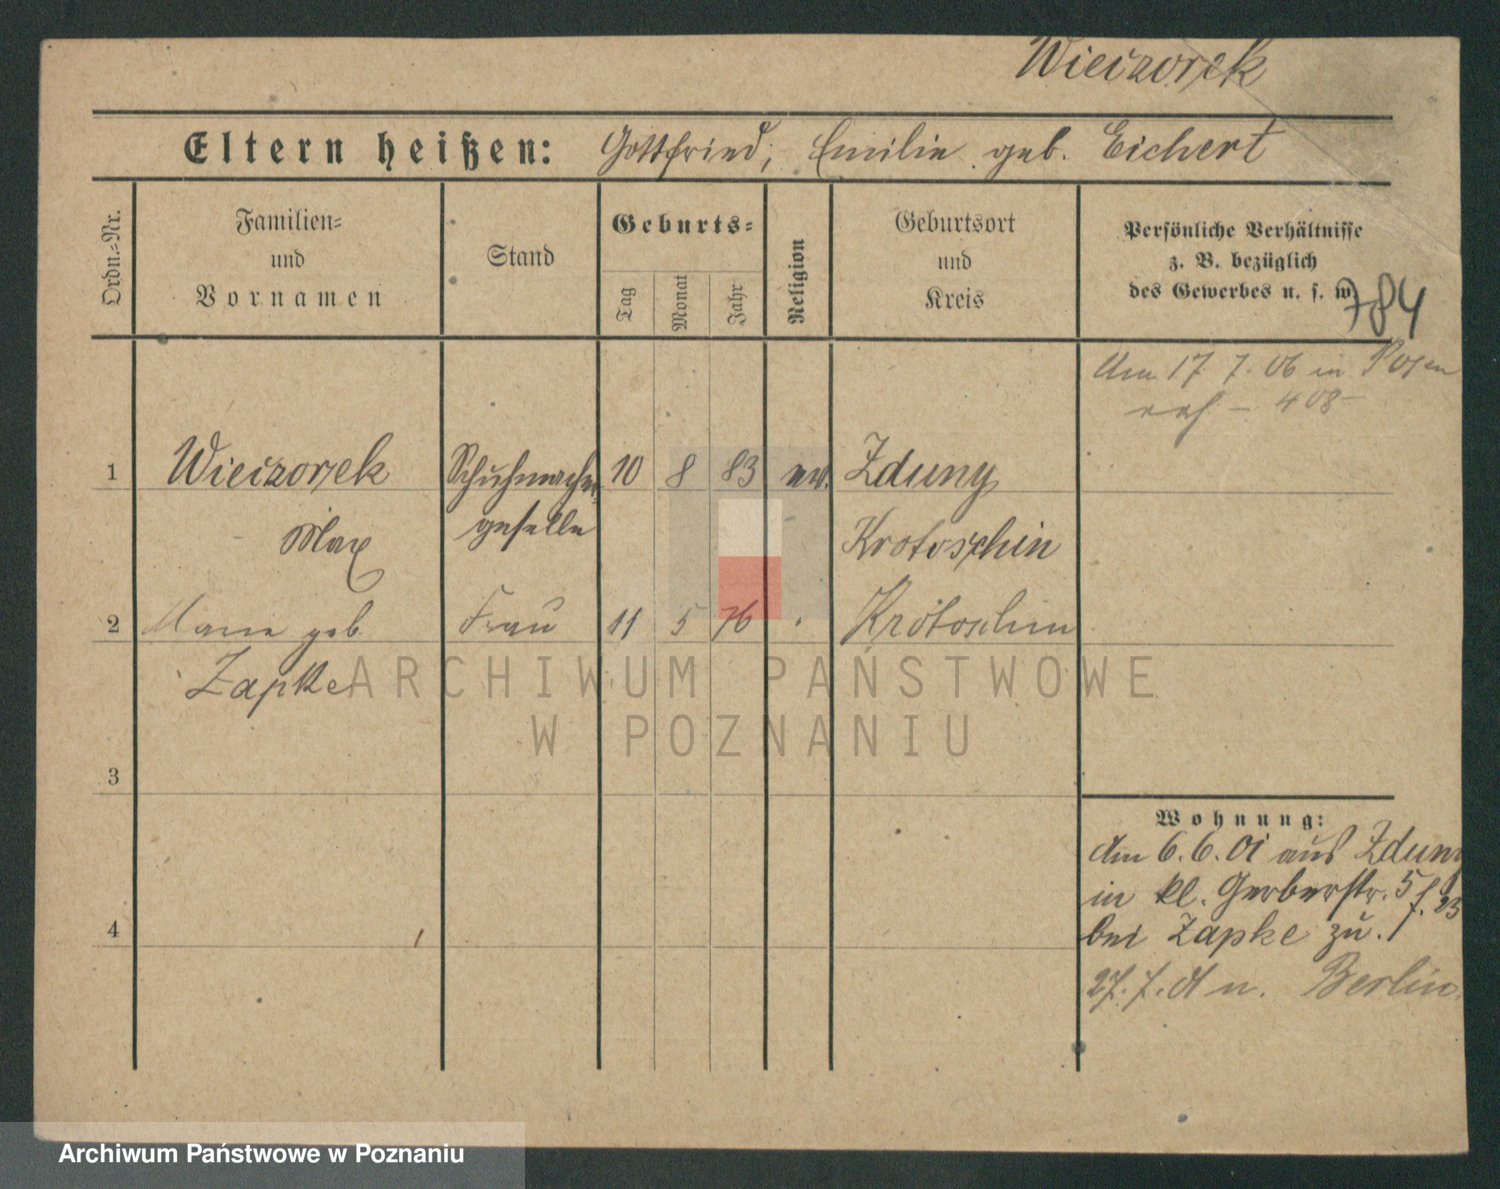 Wieczorek
Eltern heißen: Gottfried, Emilie geb. Eichert
Ordn.=Nr.
Familien=
und
Vornamen
Stand
Geburts=
Tag
Monat
Jahr
Religion
Geburtsort
und
Kreis
Persönliche Verhältnisse
z. B. bezüglich
des Gewerbes u. s. w.
784
Am 17. 7. 06 in Posen
- 408 -
1 Wieczorek Schuhmacher 10 8 83 ev. Zduny
Max geselle Krotoschin
2 Marie geb. Frau 11 5 76 Krotoschin
Zapke
3
4
Wohnung:
Am 6.6.01 aus Zduny
in kl. Gerberstr. 5
bei Zapke zu.
27. 7. 01 n. Berlin.
ARCHIWUM PAŃSTWOWE
W POZNANIU
Archiwum Państwowe w Poznaniu